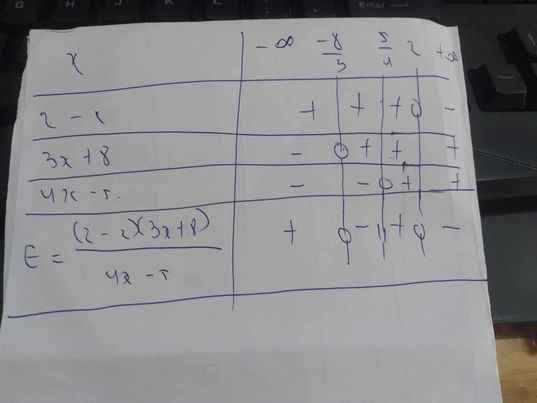 x -∞ -8/3 5/4 2 +∞
2 - x + + + 0 -
3x + 8 - 0 + + +
4x - 5 - - 0 + +
E = (2 - x)(3x + 8) / 4x - 5 + 0 - || + 0 -